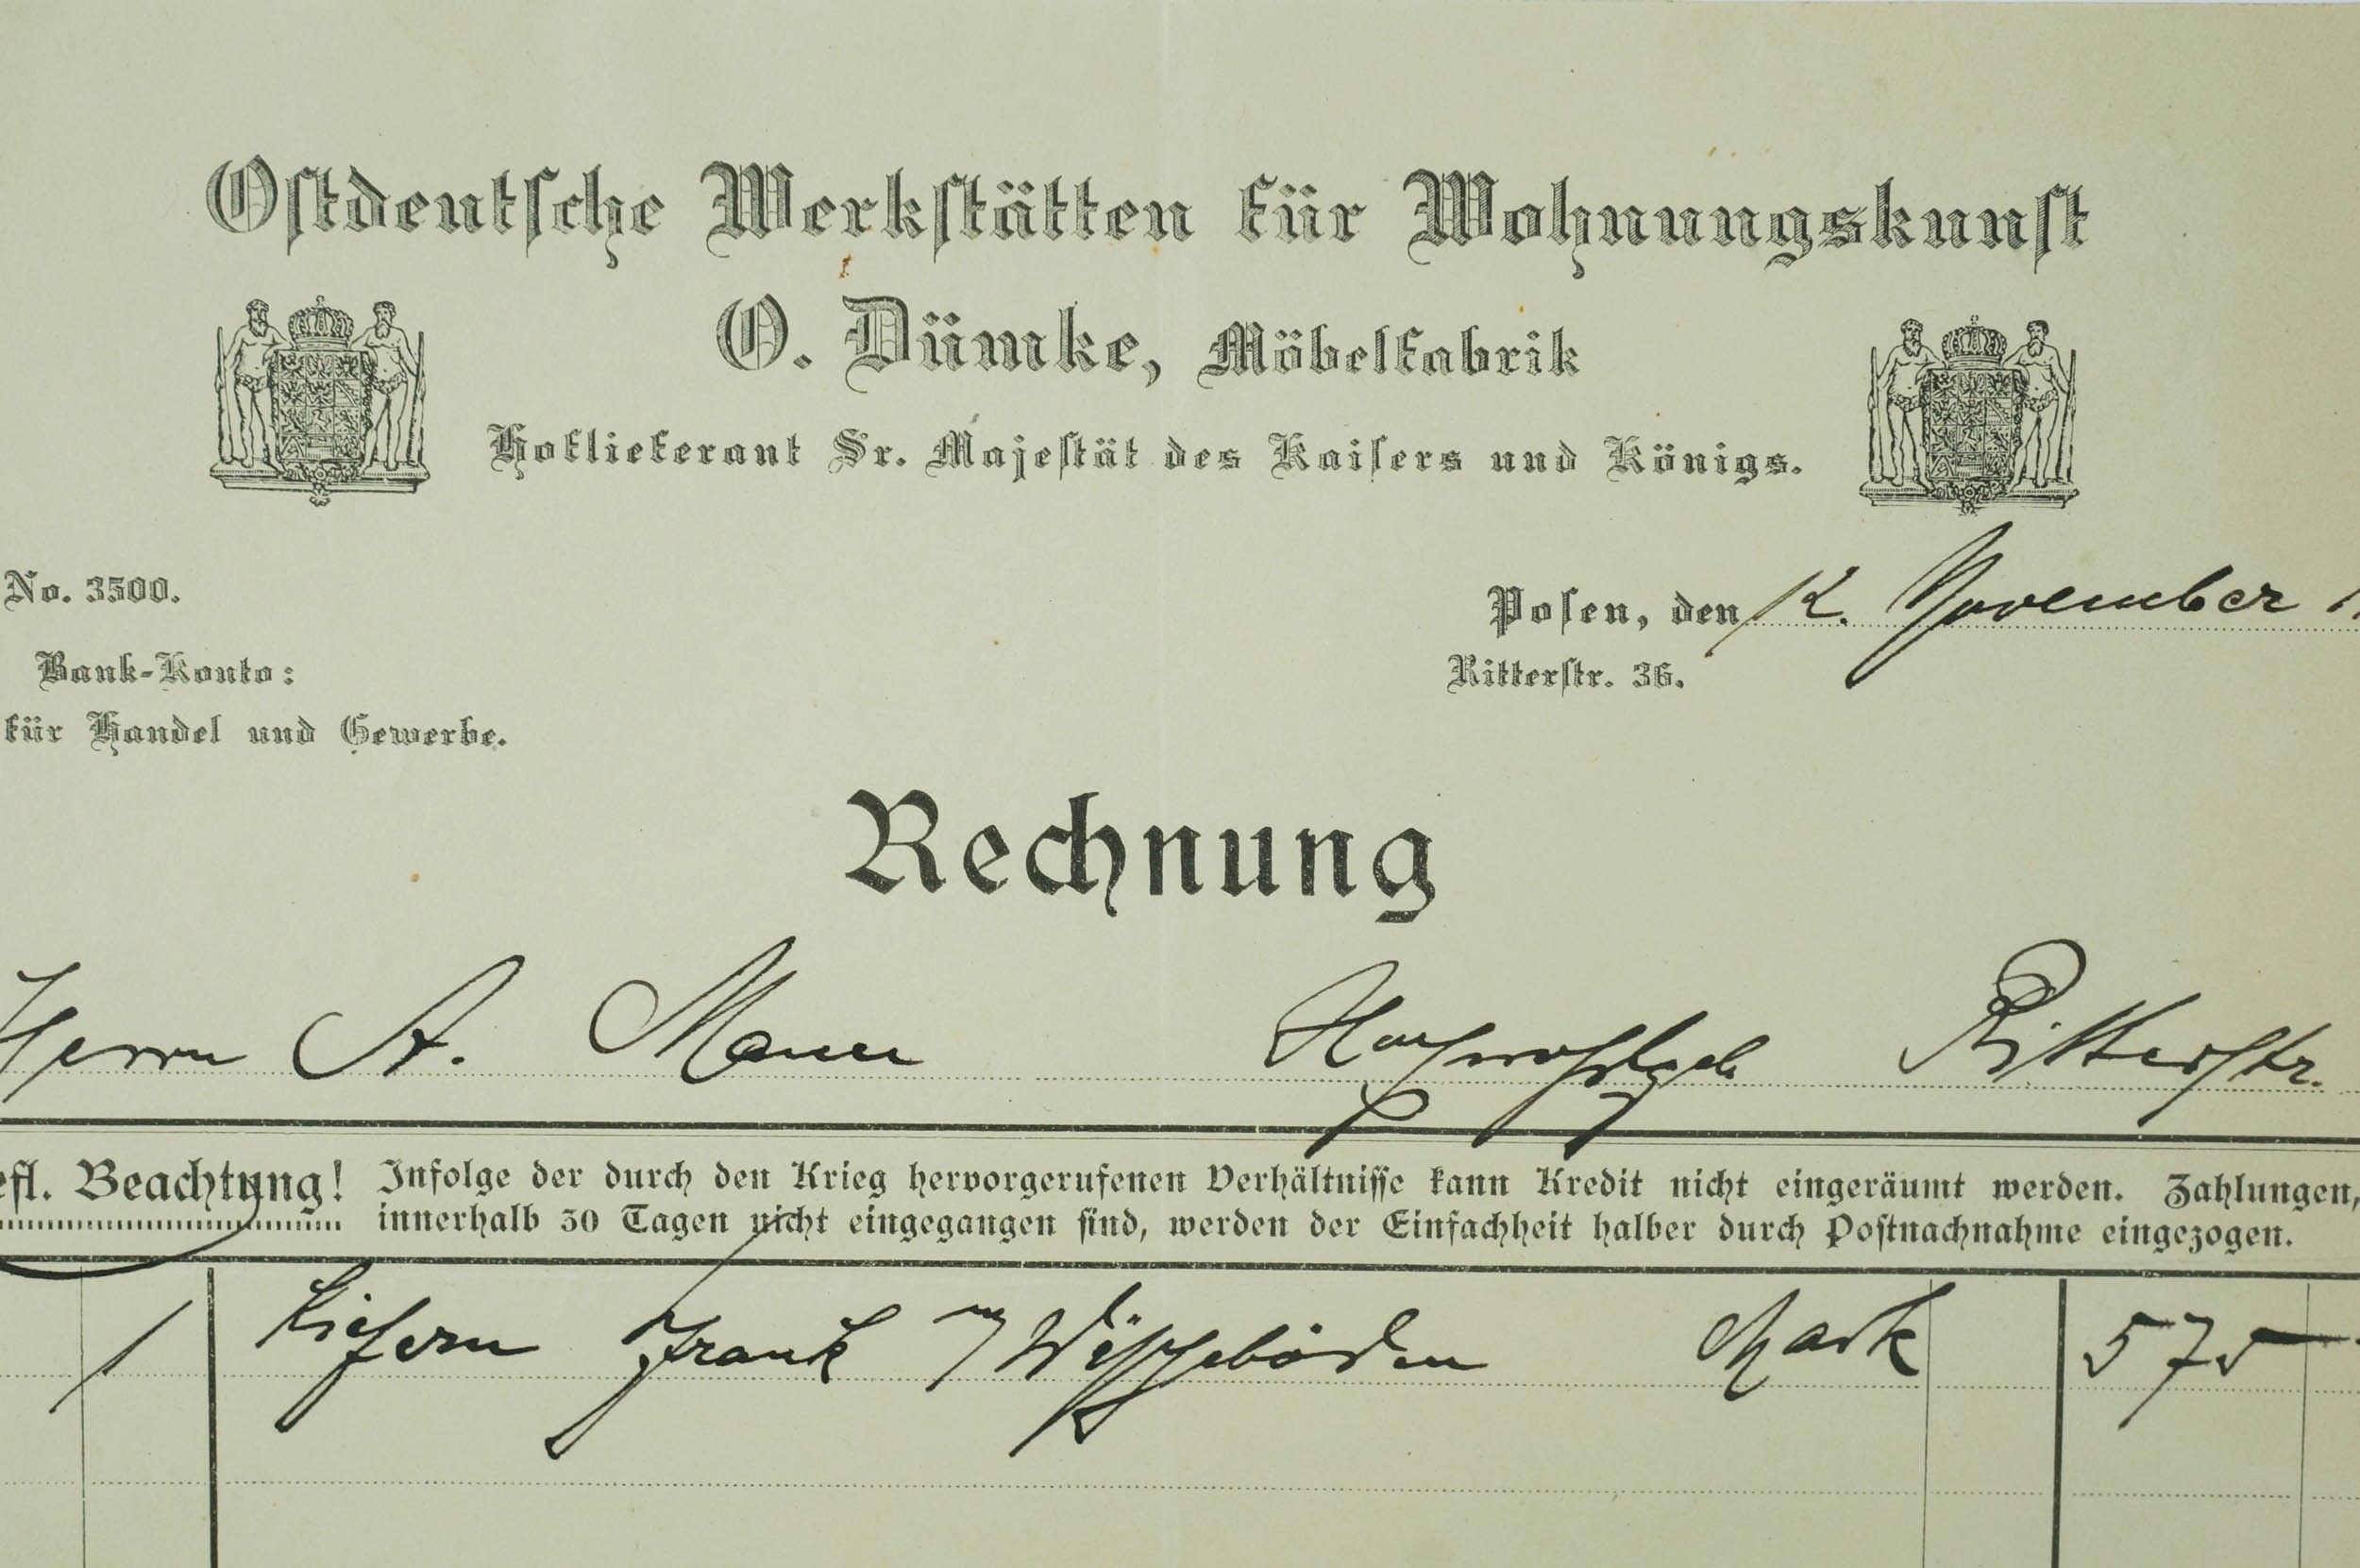 Ostdeutsche Werkstätten für Wohnungskunst
O. Dümke, Möbelfabrik
Hoflieferant Sr. Majestät des Kaisers und Königs.
No. 3500.
Posen, den 12. November
Bank-Konto:
Ritterstr. 36.
für Handel und Gewerbe.
Rechnung
Herrn A. Ritterstr.
efl. Beachtung! Infolge der durch den Krieg hervorgerufenen Verhältnisse kann Kredit nicht eingeräumt werden. Zahlungen,
innerhalb 30 Tagen nicht eingegangen sind, werden der Einfachheit halber durch Postnachnahme eingezogen.
1 Kiefern Mark 575